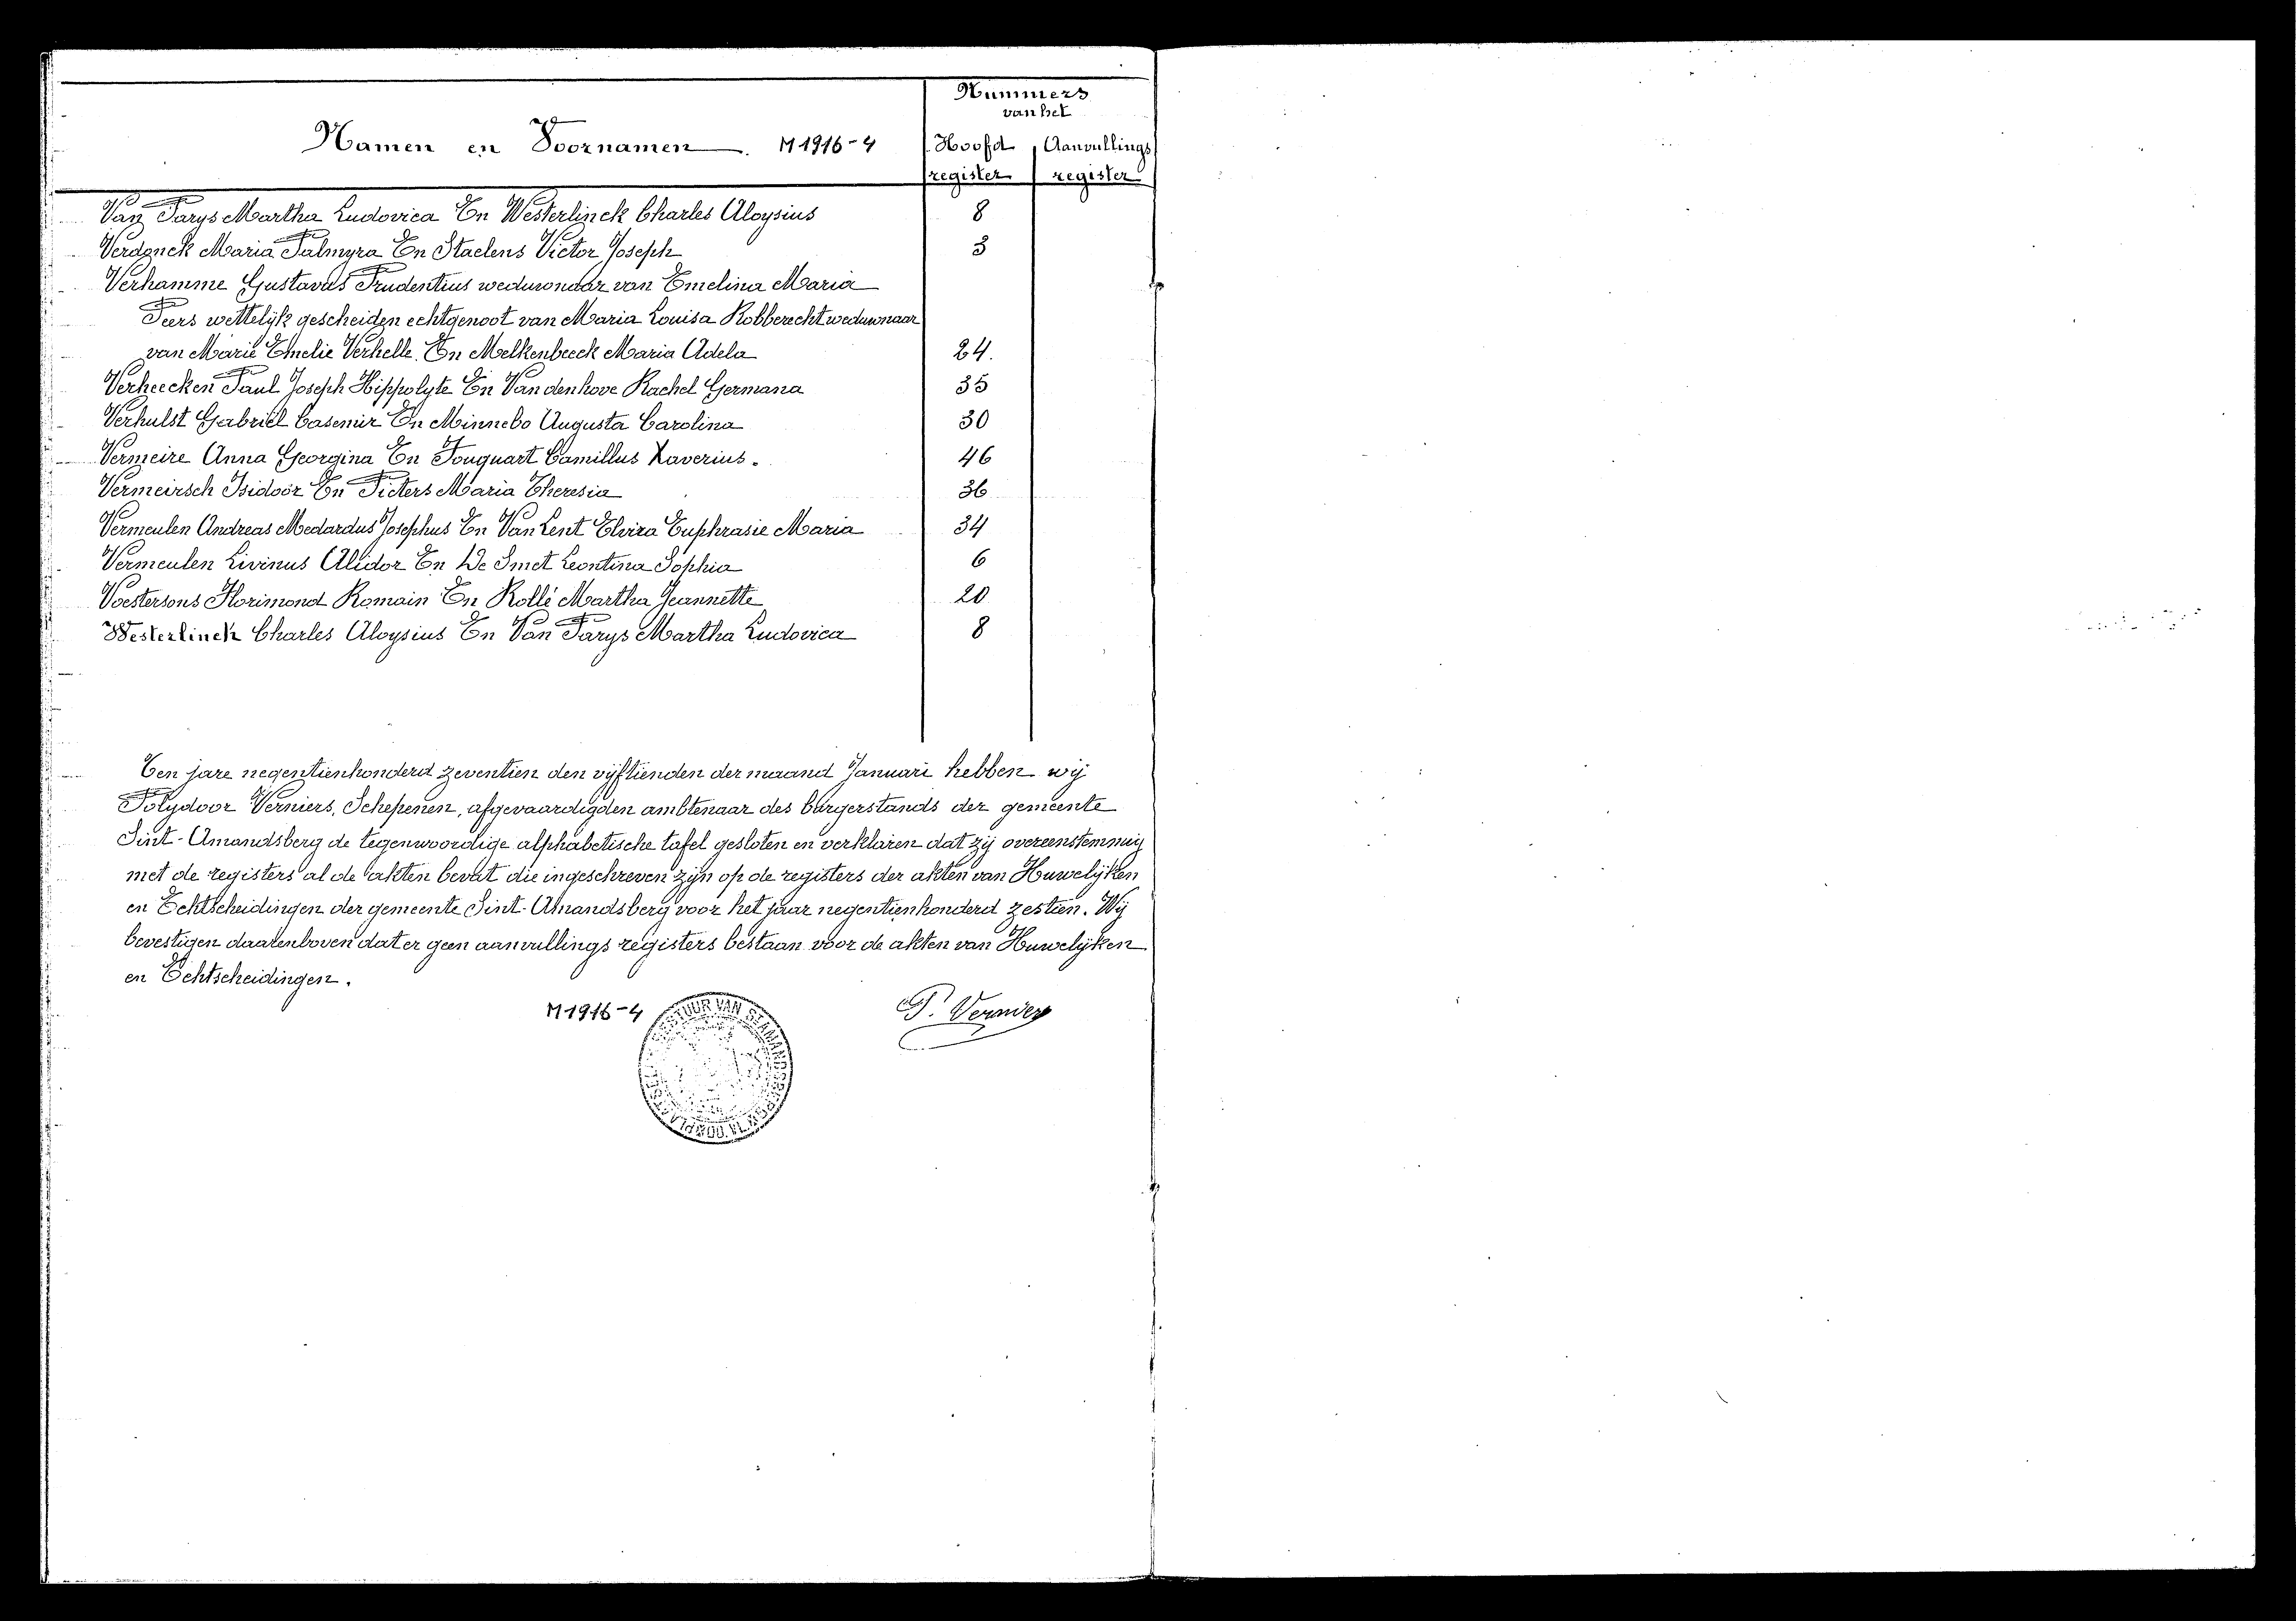 Nummers
van het
Namen en Voornamen. M 1916-4
Hoofd Aanvullings
register register
Van Parys Martha Ludovica En Westerlinck Charles Aloysius 8
Verdonck Maria Palmyra En Staelens Victor Joseph 3
Verhamme Gustavus Prudentius weduwnaar van Emelina Maria
Peers wettelijk gescheiden echtgenoot van Maria Louisa Robberecht weduwnaar
van Marie Emelie Verhelle. En Melkenbeeck Maria Adela 24.
Verheecken Paul Joseph Hippolyte En Vandenhove Rachel Germana 35
Verhulst Gabriel Casemir En Minnebo Augusta Carolina 30
Vermeire Anna Georgina En Fouquart Camillus Xaverius. 46
Vermeirsch Isidoor En Pieters Maria Theresia 36
Vermeulen Andreas Medardus Josephus En Van Lent Elvira Euphrasie Maria 34
Vermeulen Livinus Alidor En De Smet Leontina Sophia 6
Voestersons Florimond Romain En Rollé Martha Jeannette 20
Westerlinck Charles Aloysius En Van Parys Martha Ludovica 8
Ten jare negentienhonderd zeventien den vijftienden der maand Januari hebben wij
Polydoor Verniers, Schepenen, afgevaardigden ambtenaar des burgerstands der gemeente
Sint-Amandsberg de tegenwoordige alphabetische tafel gesloten en verklaren dat zij overeenstemmig
met de registers al de akten bevat die ingeschreven zijn op de registers der akten van Huwelijken
en Echtscheidingen der gemeente Sint-Amandsberg voor het jaar negentienhonderd zestien. Wij
bevestigen daarenboven dat er geen aanvullings registers bestaan voor de akten van Huwelijken
en Echtscheidingen.
M 1916-4
P. Verniers